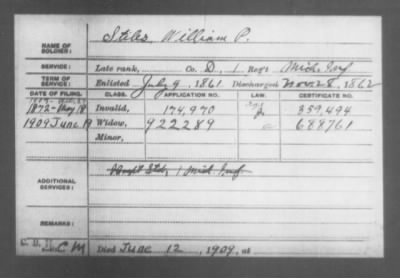 NAME OF SOLDIER: Stiles, William P.
SERVICE: Late rank, Co. D, 1 Reg't Mich. Inf
TERM OF SERVICE: Enlisted July 9, 1861 Discharged Nov. 28, 1862
DATE OF FILING. CLASS. APPLICATION NO. LAW. CERTIFICATE NO.
1872-May 18 Invalid, 174,970 359,494
1909 June 19 Widow, 922289 688761
Minor,
ADDITIONAL SERVICES: 1 Mich. Inf
REMARKS:
C M Died June 12, 1909, at